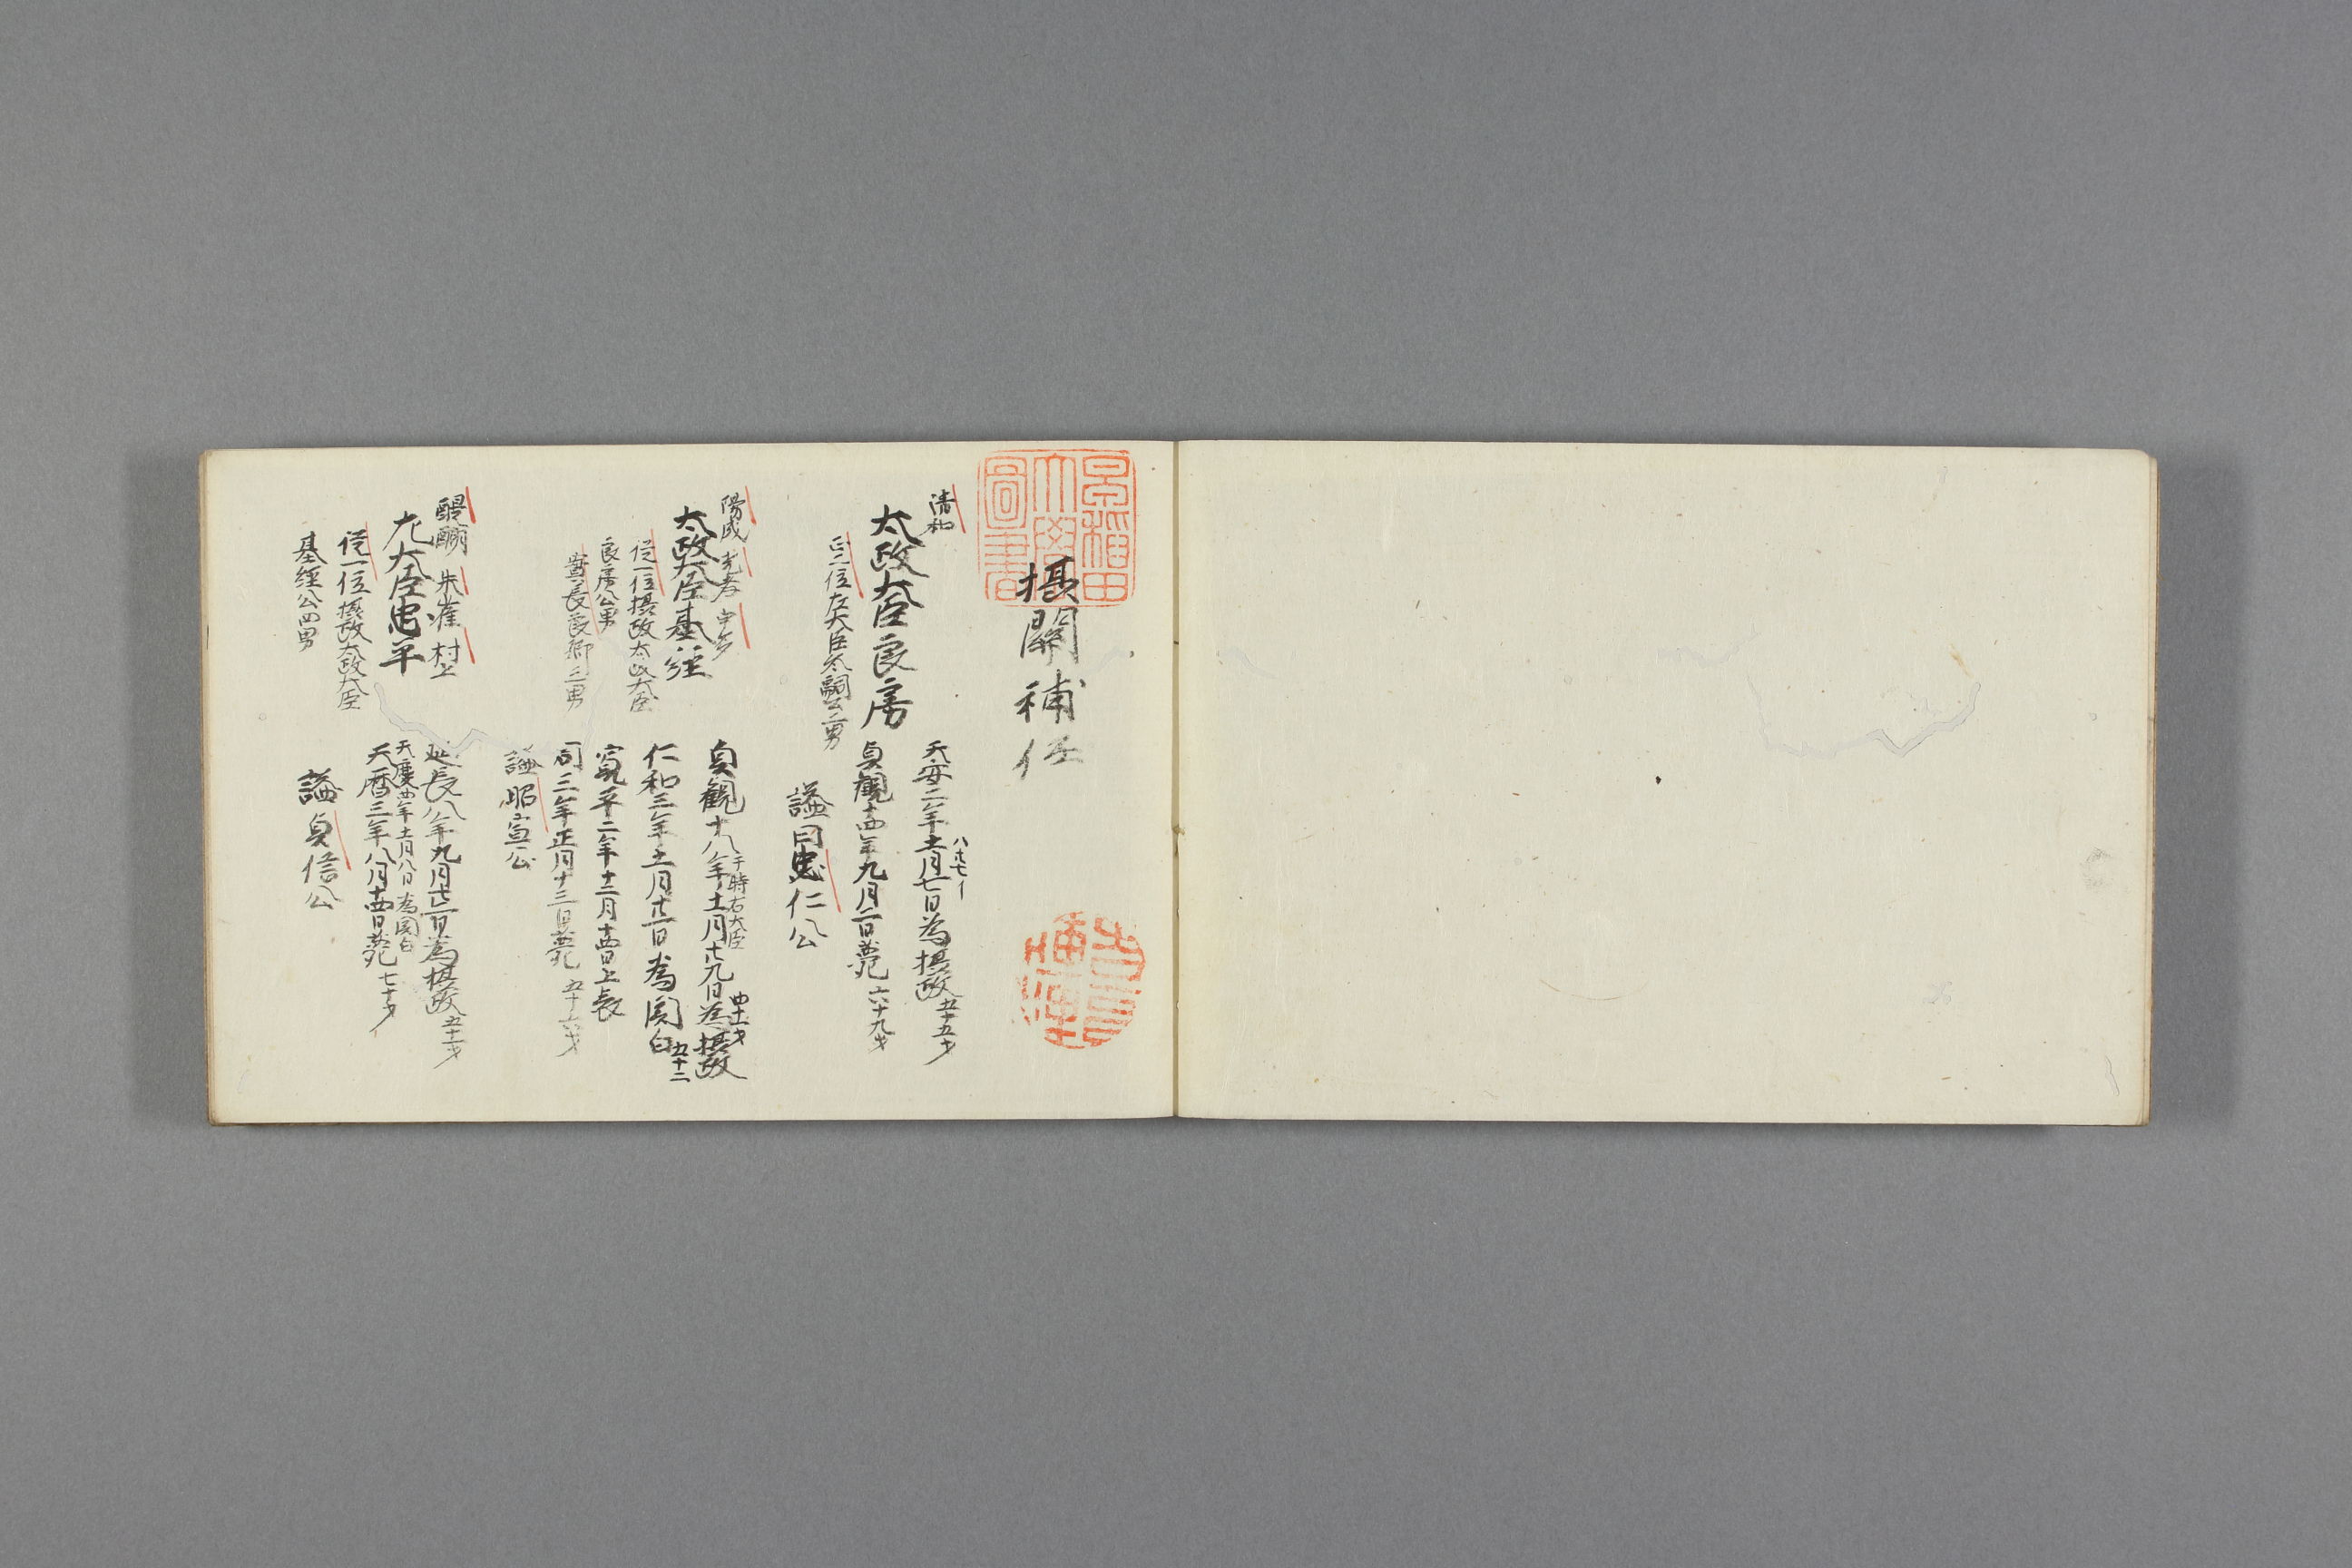 早稲田大學圖書
攝關補任
清和
太政大臣良房
正二位左大臣冬嗣公二男
天安二年十一月七日為摂政五十五才
貞觀十四年九月二日薨六十九才
謚曰忠仁公
陽成 光孝 宇多
太政大臣基経
従一位摂政太政大臣
良房公男
實長良卿三男
于時右大臣
貞觀十八年十一月廿九日為摂政四十一才
仁和三年十一月廿一日為関白五十二
寛平二年十二月十四日上表
同三年正月十三日薨五十六才
謚昭宣公
醍醐 朱雀 村上
左大臣忠平
従一位摂政太政大臣
基経公四男
延長八年九月廿二日為摂政五十一才
天慶四年十一月八日為関白
天暦三年八月十四日薨七十才
謚貞信公